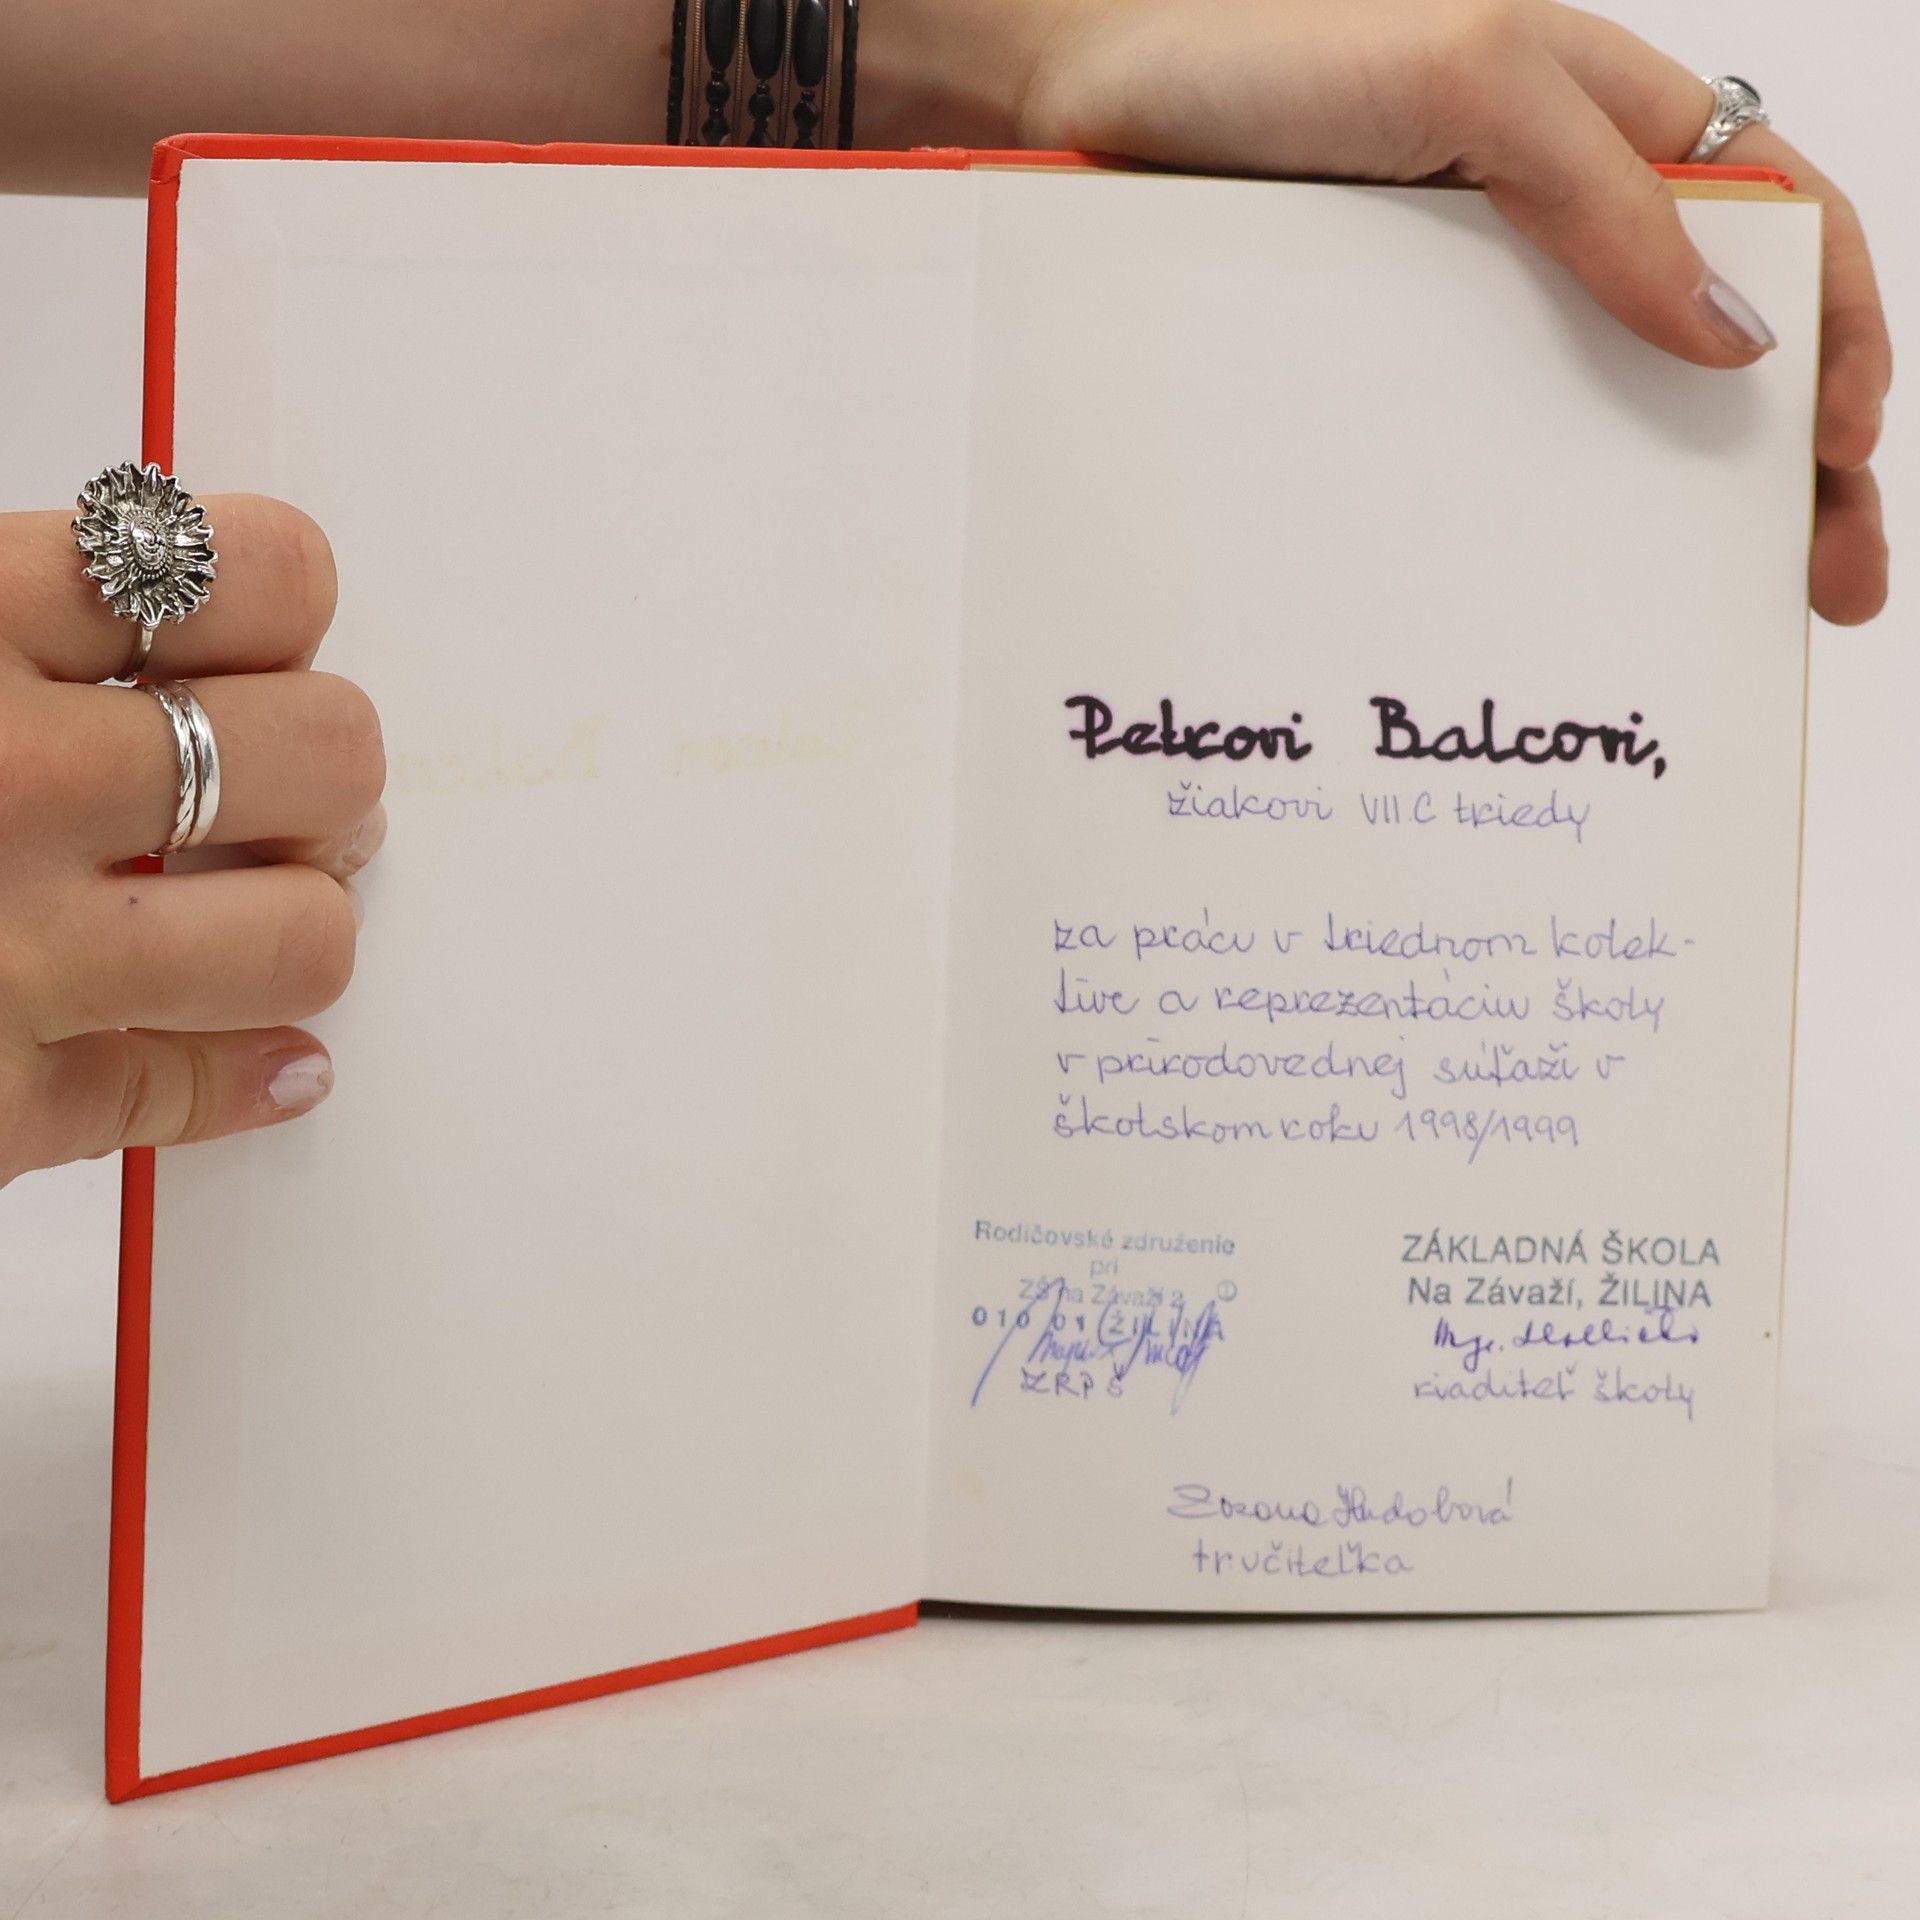 Petrovi Balcovi,
žiakovi VII.C triedy
za prácu v triednom kolek-
tíve a reprezentáciu školy
v prírodovednej súťaži v
školskom roku 1998/1999
Rodičovské združenie
pri
ZŠ na Závaží 2
010 01 ŽILINA
ZRPŠ
ZÁKLADNÁ ŠKOLA
Na Závaží, ŽILINA
Mgr.
riaditeľ školy
Zuzana Hudobová
tr. učiteľka